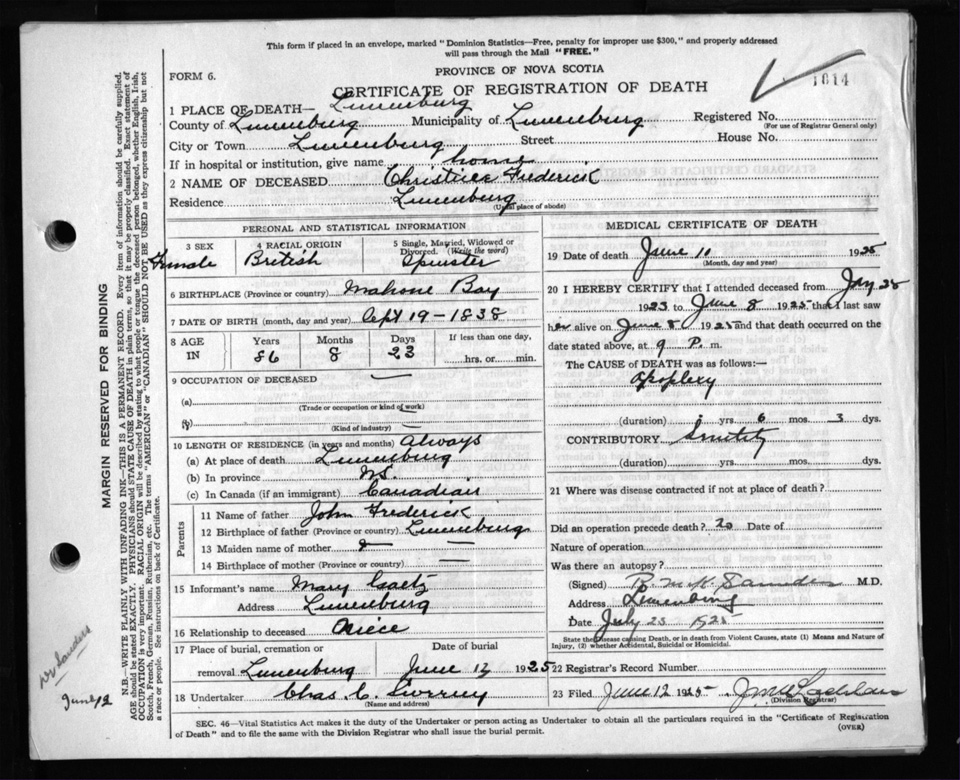 This form if placed in an envelope, marked "Dominion Statistics—Free, penalty for improper use $300," and properly addressed
will pass through the Mail "FREE."
PROVINCE OF NOVA SCOTIA
FORM 6.
CERTIFICATE OF REGISTRATION OF DEATH
1614
1 PLACE OF DEATH— Lunenburg
County of Lunenburg Municipality of Lunenburg Registered No.
(For use of Registrar General only)
City or Town Lunenburg Street House No.
If in hospital or institution, give name home
2 NAME OF DECEASED Frederick
Residence Lunenburg
(Usual place of abode)
PERSONAL AND STATISTICAL INFORMATION
3 SEX Female
4 RACIAL ORIGIN British
5 Single, Married, Widowed or Divorced. (Write the word) Spinster
6 BIRTHPLACE (Province or country) Mahone Bay
7 DATE OF BIRTH (month, day and year) Sept 19-1838
8 AGE IN Years 86 Months 8 Days 23 If less than one day, hrs. or min.
9 OCCUPATION OF DECEASED —
(a)
(Trade or occupation or kind of work)
(b)
(Kind of industry)
10 LENGTH OF RESIDENCE (in years and months) Always
(a) At place of death Lunenburg
(b) In province NS.
(c) In Canada (if an immigrant) Canadian
Parents
11 Name of father John Frederick
12 Birthplace of father (Province or country) Lunenburg
13 Maiden name of mother —
14 Birthplace of mother (Province or country) —
15 Informant's name Mary
Address Lunenburg
16 Relationship to deceased Niece
17 Place of burial, cremation or Date of burial
removal Lunenburg June 12 1925
18 Undertaker Chas. C.
(Name and address)
MEDICAL CERTIFICATE OF DEATH
19 Date of death June 11 1925
(Month, day and year)
20 I HEREBY CERTIFY that I attended deceased from 28
1923 to June 8 1925 that I last saw
her alive on June 8 1925 and that death occurred on the
date stated above, at 9 P. m.
The CAUSE OF DEATH was as follows:—
Apoplexy
(duration) yrs. 6 mos. 3 dys.
CONTRIBUTORY Senility
(duration) yrs. mos. dys.
21 Where was disease contracted if not at place of death?
Did an operation precede death? Date of
Nature of operation
Was there an autopsy?
(Signed) M.D.
Address Lunenburg
Date July 23 1925
State the Disease causing Death, or in death from Violent Causes, state (1) Means and Nature of
Injury, (2) whether Accidental, Suicidal or Homicidal.
22 Registrar's Record Number
23 Filed June 12 1925
(Division Registrar)
SEC. 46—Vital Statistics Act makes it the duty of the Undertaker or person acting as Undertaker to obtain all the particulars required in the "Certificate of Registration
of Death" and to file the same with the Division Registrar who shall issue the burial permit.
(OVER)
MARGIN RESERVED FOR BINDING
N.B.—WRITE PLAINLY WITH UNFADING INK—THIS IS A PERMANENT RECORD. Every item of information should be carefully supplied.
AGE should be stated EXACTLY. PHYSICIANS should STATE CAUSE OF DEATH in plain terms, so that it may be properly classified. Exact statement of
OCCUPATION is very important. RACIAL ORIGIN will be described by stating to what people or tongue the deceased person belonged, whether English, Irish,
Scotch, French, German, Russian, Ruthenian, etc. The terms "AMERICAN" or "CANADIAN" SHOULD NOT BE USED as they express citizenship but not
a race or people. See instructions on back of Certificate.